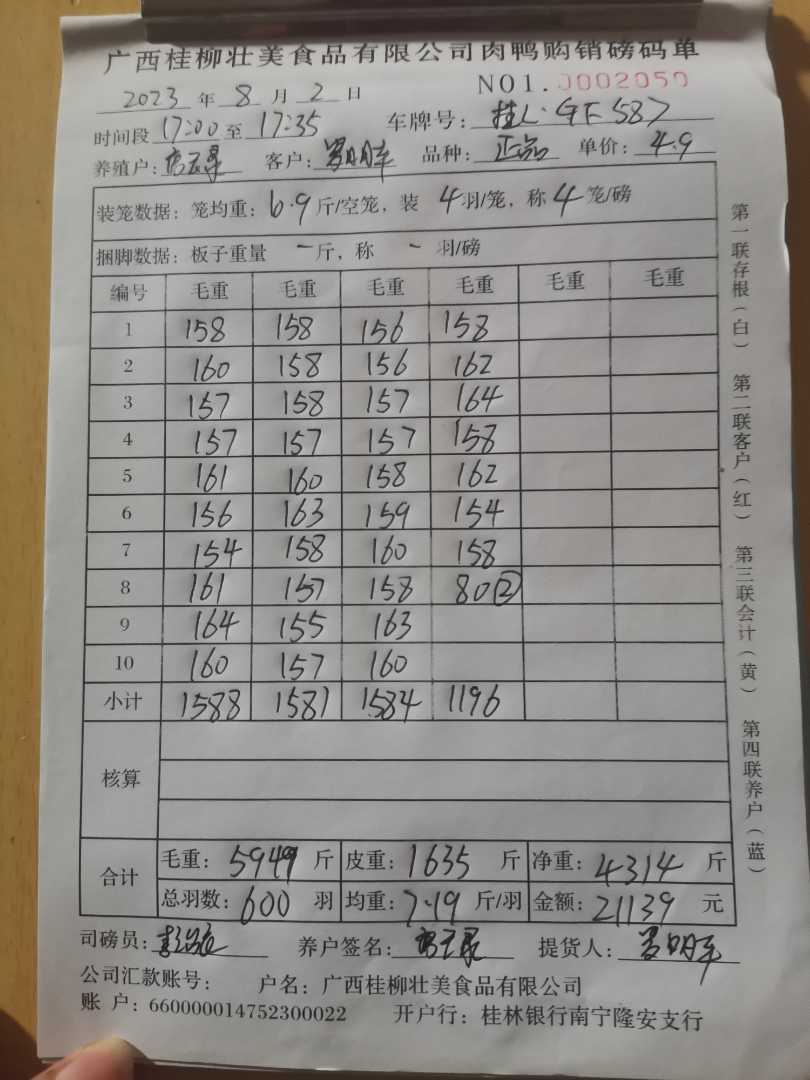 广西桂柳壮美食品有限公司肉鸭购销磅码单
NO1.0002050
2023 年 8 月 2 日
时间段 17:00 至 17:35 车牌号: 桂 587
养殖户: 客户: 罗明军 品种: 正品 单价: 4.9
装笼数据: 笼均重: 6.9 斤/空笼, 装 4 羽/笼, 称 4 笼/磅
捆脚数据: 板子重量 一 斤, 称 一 羽/磅
编号 毛重 毛重 毛重 毛重 毛重 毛重
1 158 158 156 158
2 160 158 156 162
3 157 158 157 164
4 157 157 157 158
5 161 160 158 162
6 156 163 159 154
7 154 158 160 158
8 161 157 158 80②
9 164 155 163
10 160 157 160
小计 1588 1581 1584 1196
核算
合计 毛重: 5949 斤 皮重: 1635 斤 净重: 4314 斤
总羽数: 600 羽 均重: 7.19 斤/羽 金额: 21139 元
司磅员: 养户签名: 提货人: 罗明军
公司汇款账号: 户名: 广西桂柳壮美食品有限公司
账 户: 660000014752300022 开户行: 桂林银行南宁隆安支行
第一联存根(白) 第二联客户(红) 第三联会计(黄) 第四联养户(蓝)